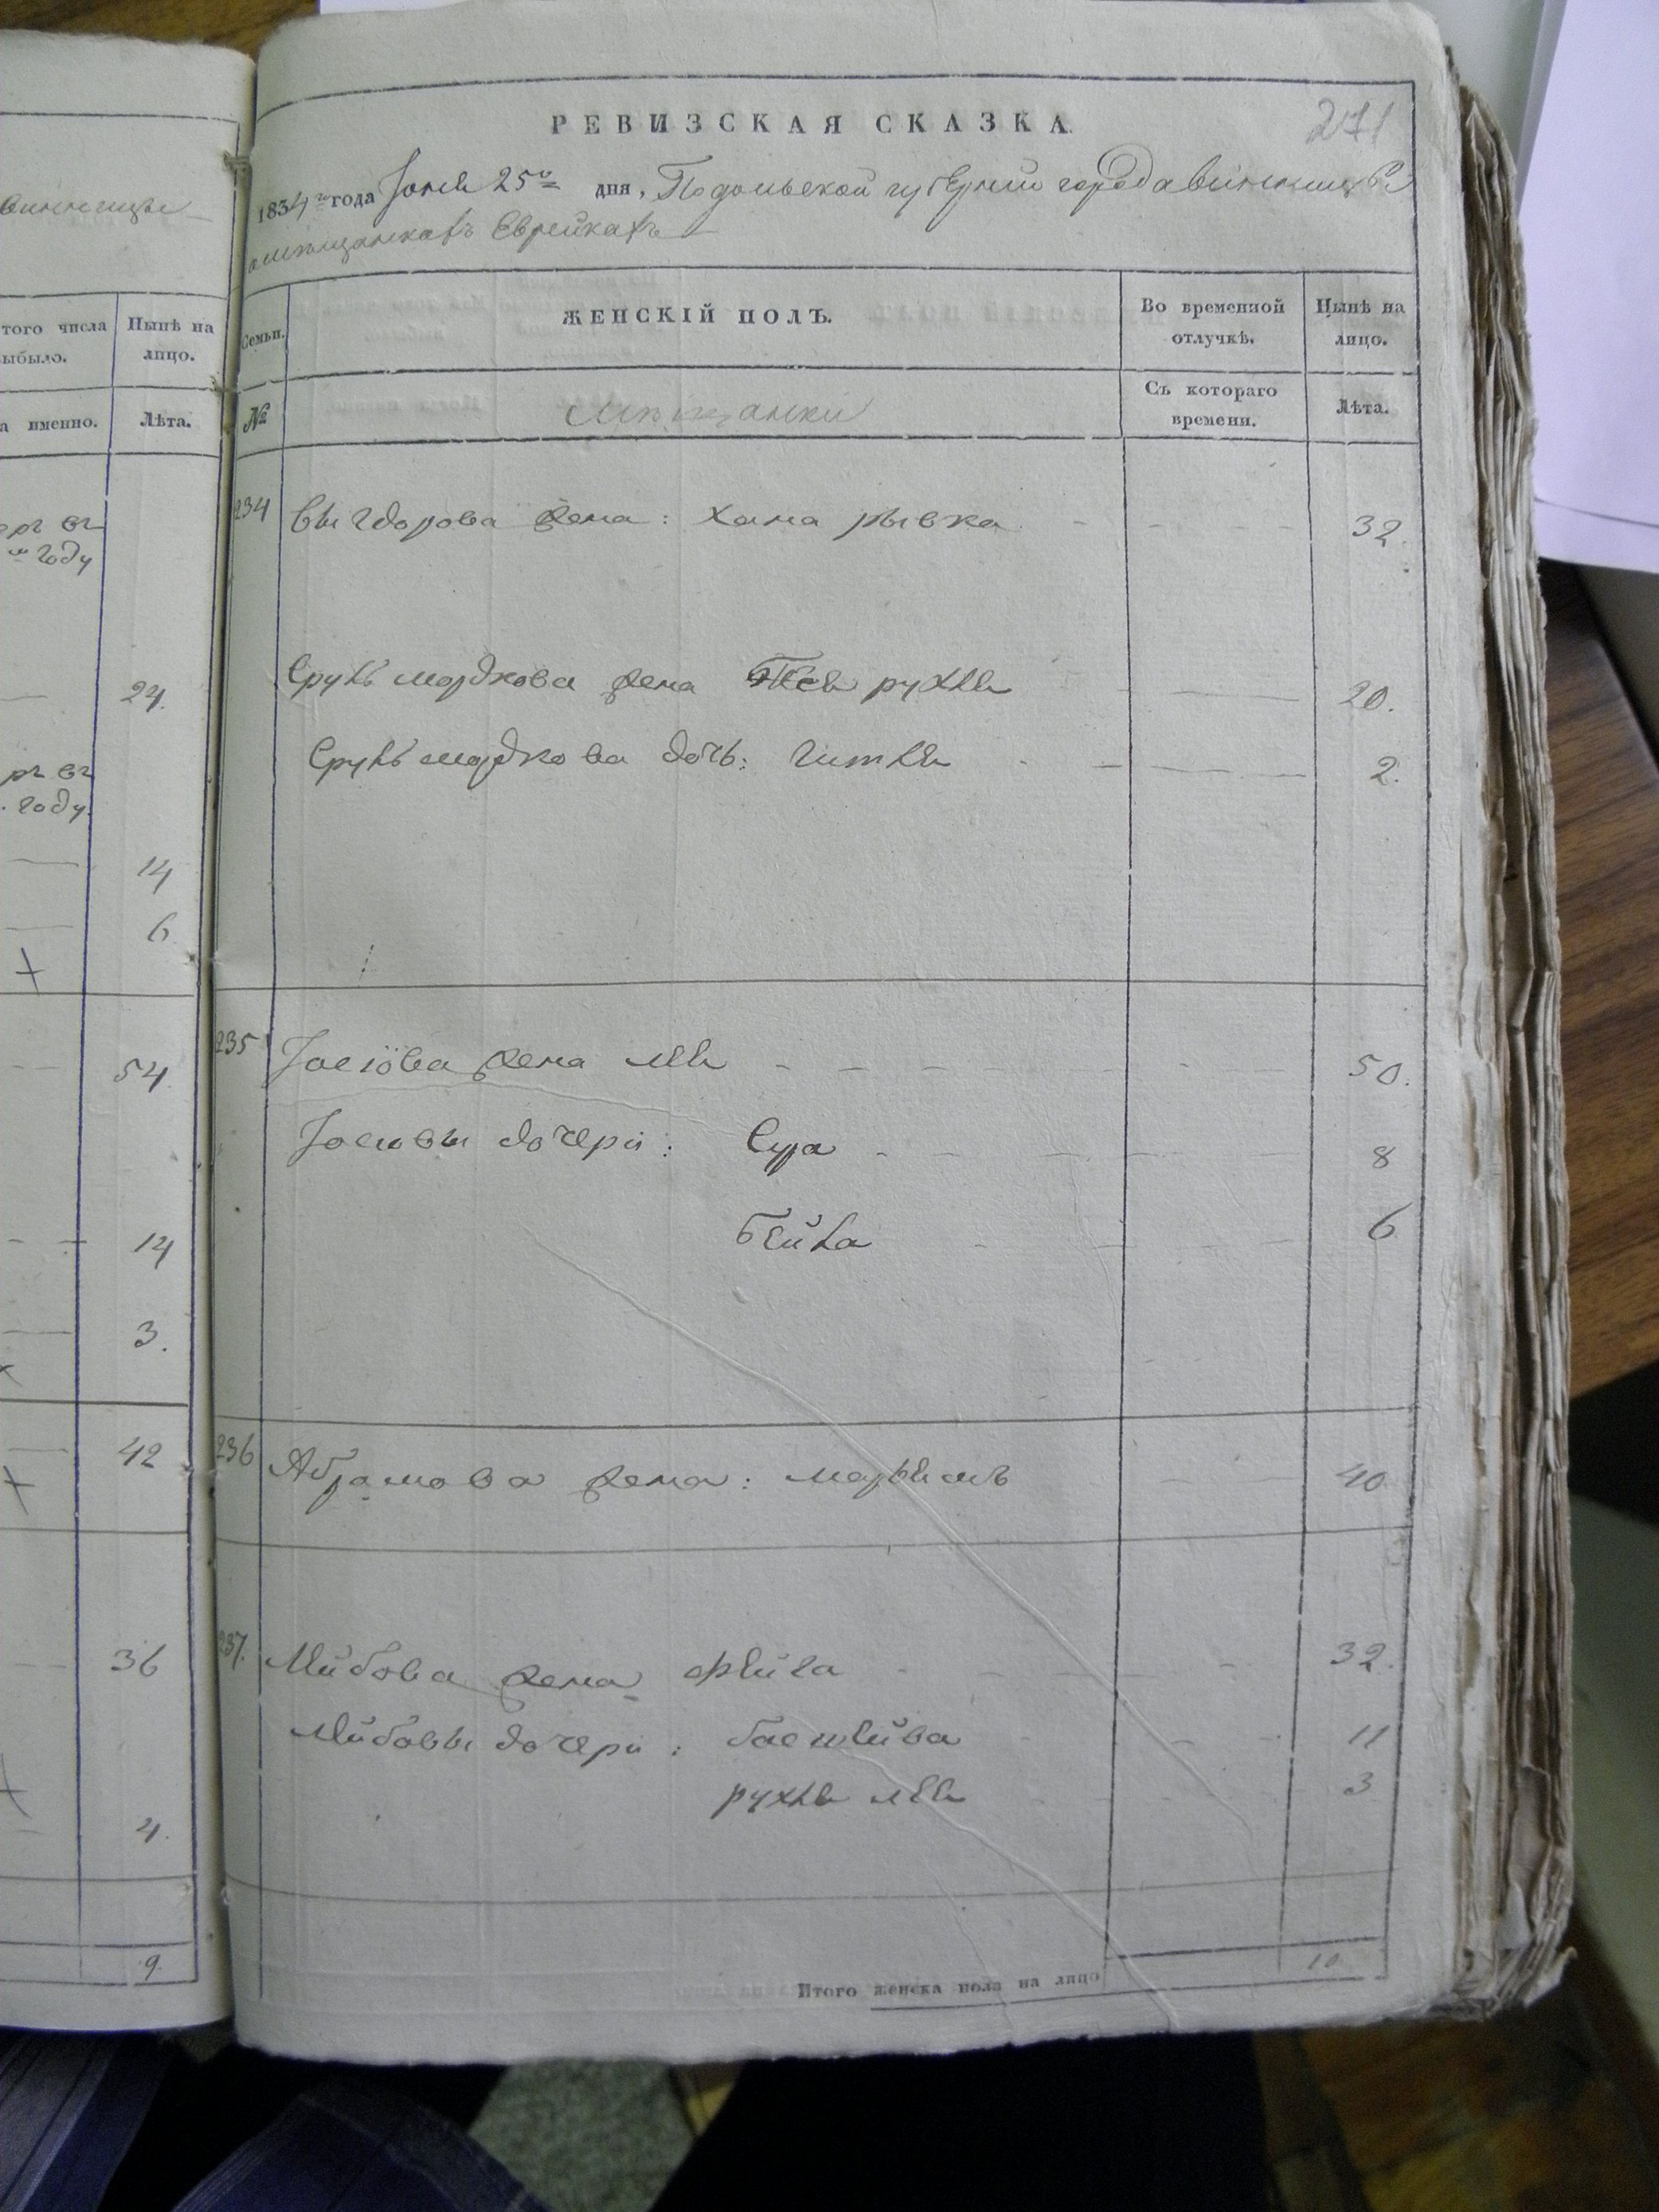 Винницы
того числа
выбыло.
Нынѣ на
лицо.
а именно.
Лѣта.
году
24.
году.
14
6
54
14
3.
42
36
4.
9.
271
РЕВИЗСКАЯ СКАЗКА.
1834го года Іюня 25го дня, Подольской губерніи города Винницы о
мѣщанкахъ Еврейкахъ
Семьи.
ЖЕНСКІЙ ПОЛЪ.
Во временной
отлучкѣ.
Нынѣ на
лицо.
№
мѣщанки
Съ котораго
времени.
Лѣта.
234 Выгдорова жена: Хана рывка 32.
Сруль мордкова жена рухля 20.
Сруль мордкова дочь: Гитля 2.
235 Іосіова жена лея 50.
Іосіовы дочери: Сура 8
Бейла 6
236 Абрамова жена: марьямъ 40
237. Лейбова жена фейга 32.
Лейбовы дочери: басшейва 11
рухля лея 3
Итого женска пола на лицо 10